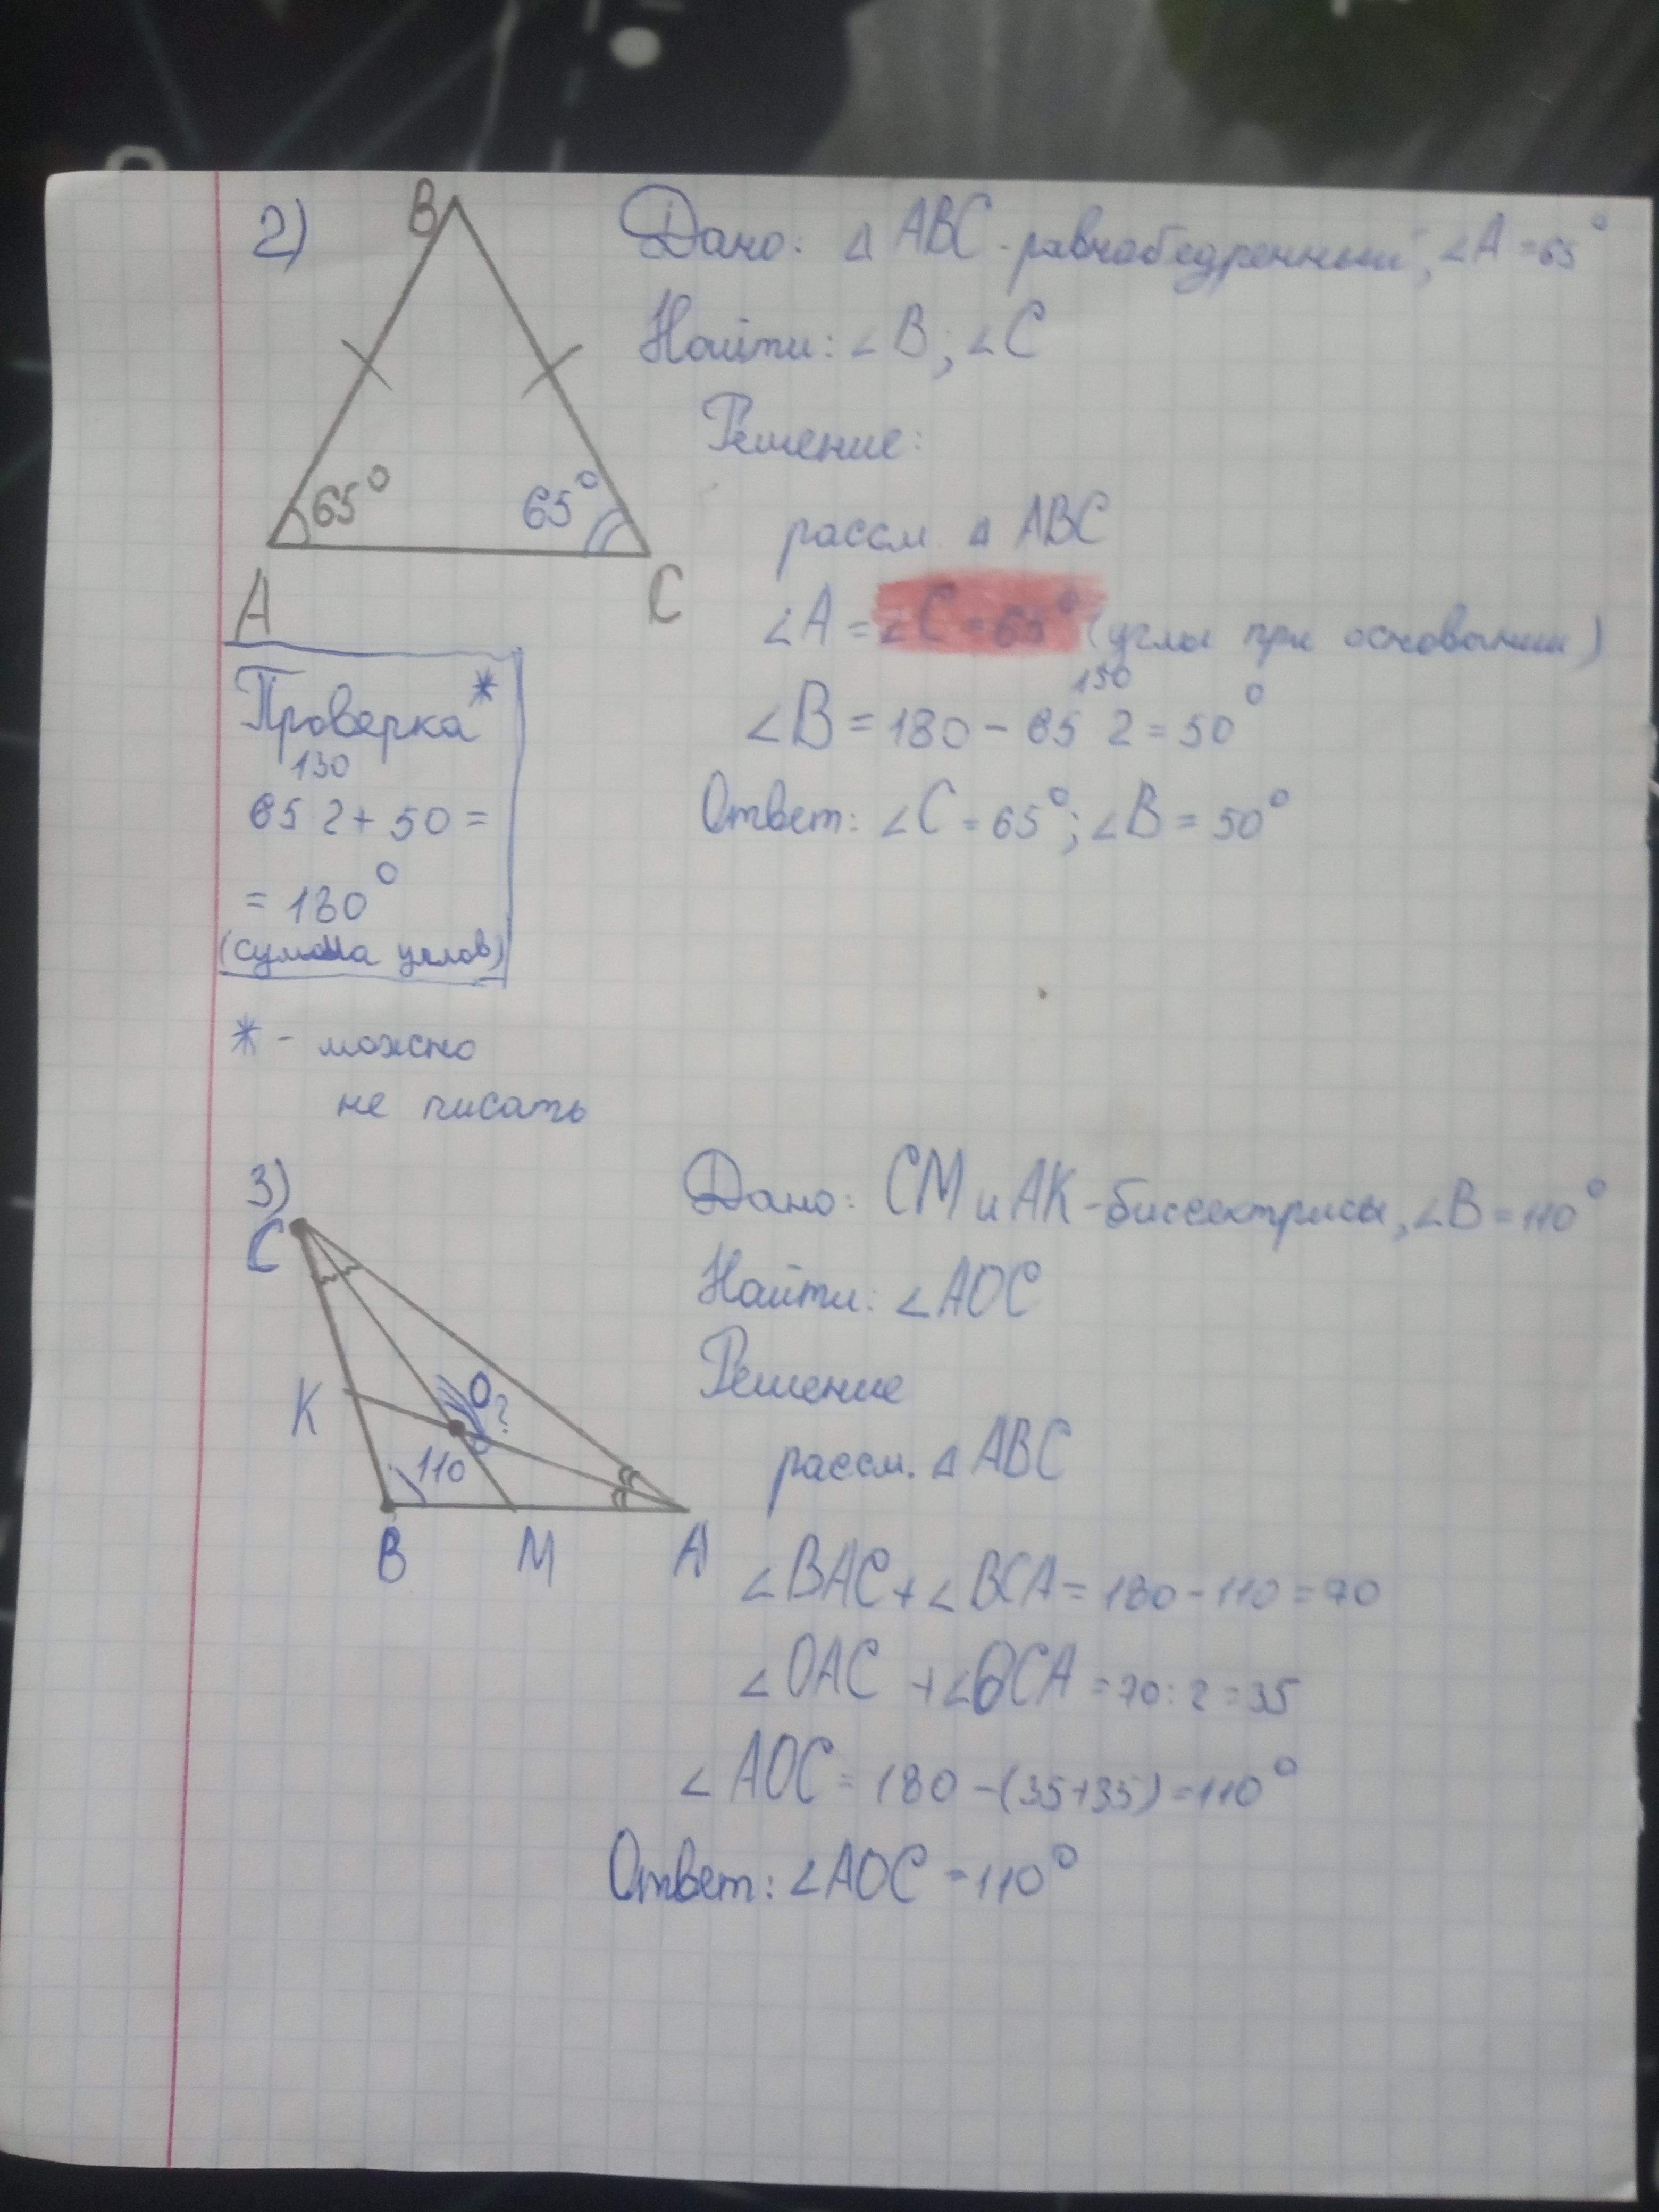 2)
B
Дано: △ ABC - равнобедренный, ∠A = 65°
Найти: ∠B; ∠C
Решение:
65° 65°
рассм. △ ABC
A C
∠A = ∠C = 65° (углы при основании)
130
∠B = 180 - 65 2 = 50°
Ответ: ∠C = 65°; ∠B = 50°
Проверка*
130
65 2 + 50 =
= 180°
(сумма углов)
* - можно
не писать
3)
C
Дано: CM и AK - биссектрисы, ∠B = 110°
Найти: ∠AOC
Решение
K O ?
110
рассм. △ ABC
B M A
∠BAC + ∠BCA = 180 - 110 = 70
∠OAC + ∠OCA = 70 : 2 = 35
∠AOC = 180 - (35+35) = 110°
Ответ: ∠AOC = 110°